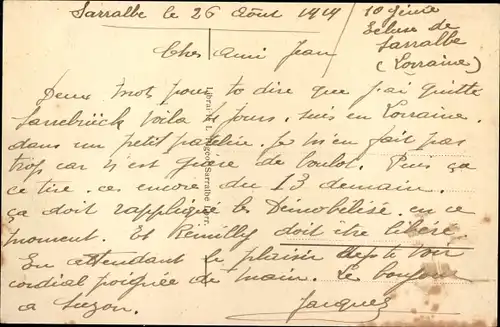 Sarralbe le 26 Août 1919
10 Génie
Ecluse de
Sarralbe
(Lorraine)
Cher Ami Jean
Deux mots pour te dire que j'ai quitté
Sarrebrück voila jours, suis en Lorraine.
dans un petit patelin. Je m'en fait pas
trop car n'est guère de boulot. Puis ça
ce tire. ces encore du 13 demain.
ça doit rappliqué les Démobilisé. en ce
moment. Et Remilly doit être libéré.
En attendant le plaisir de te voir
cordial poignée de main. Le bonjour
a Suzon.
Jacques
Librairie L. Sarralbe Lorr.